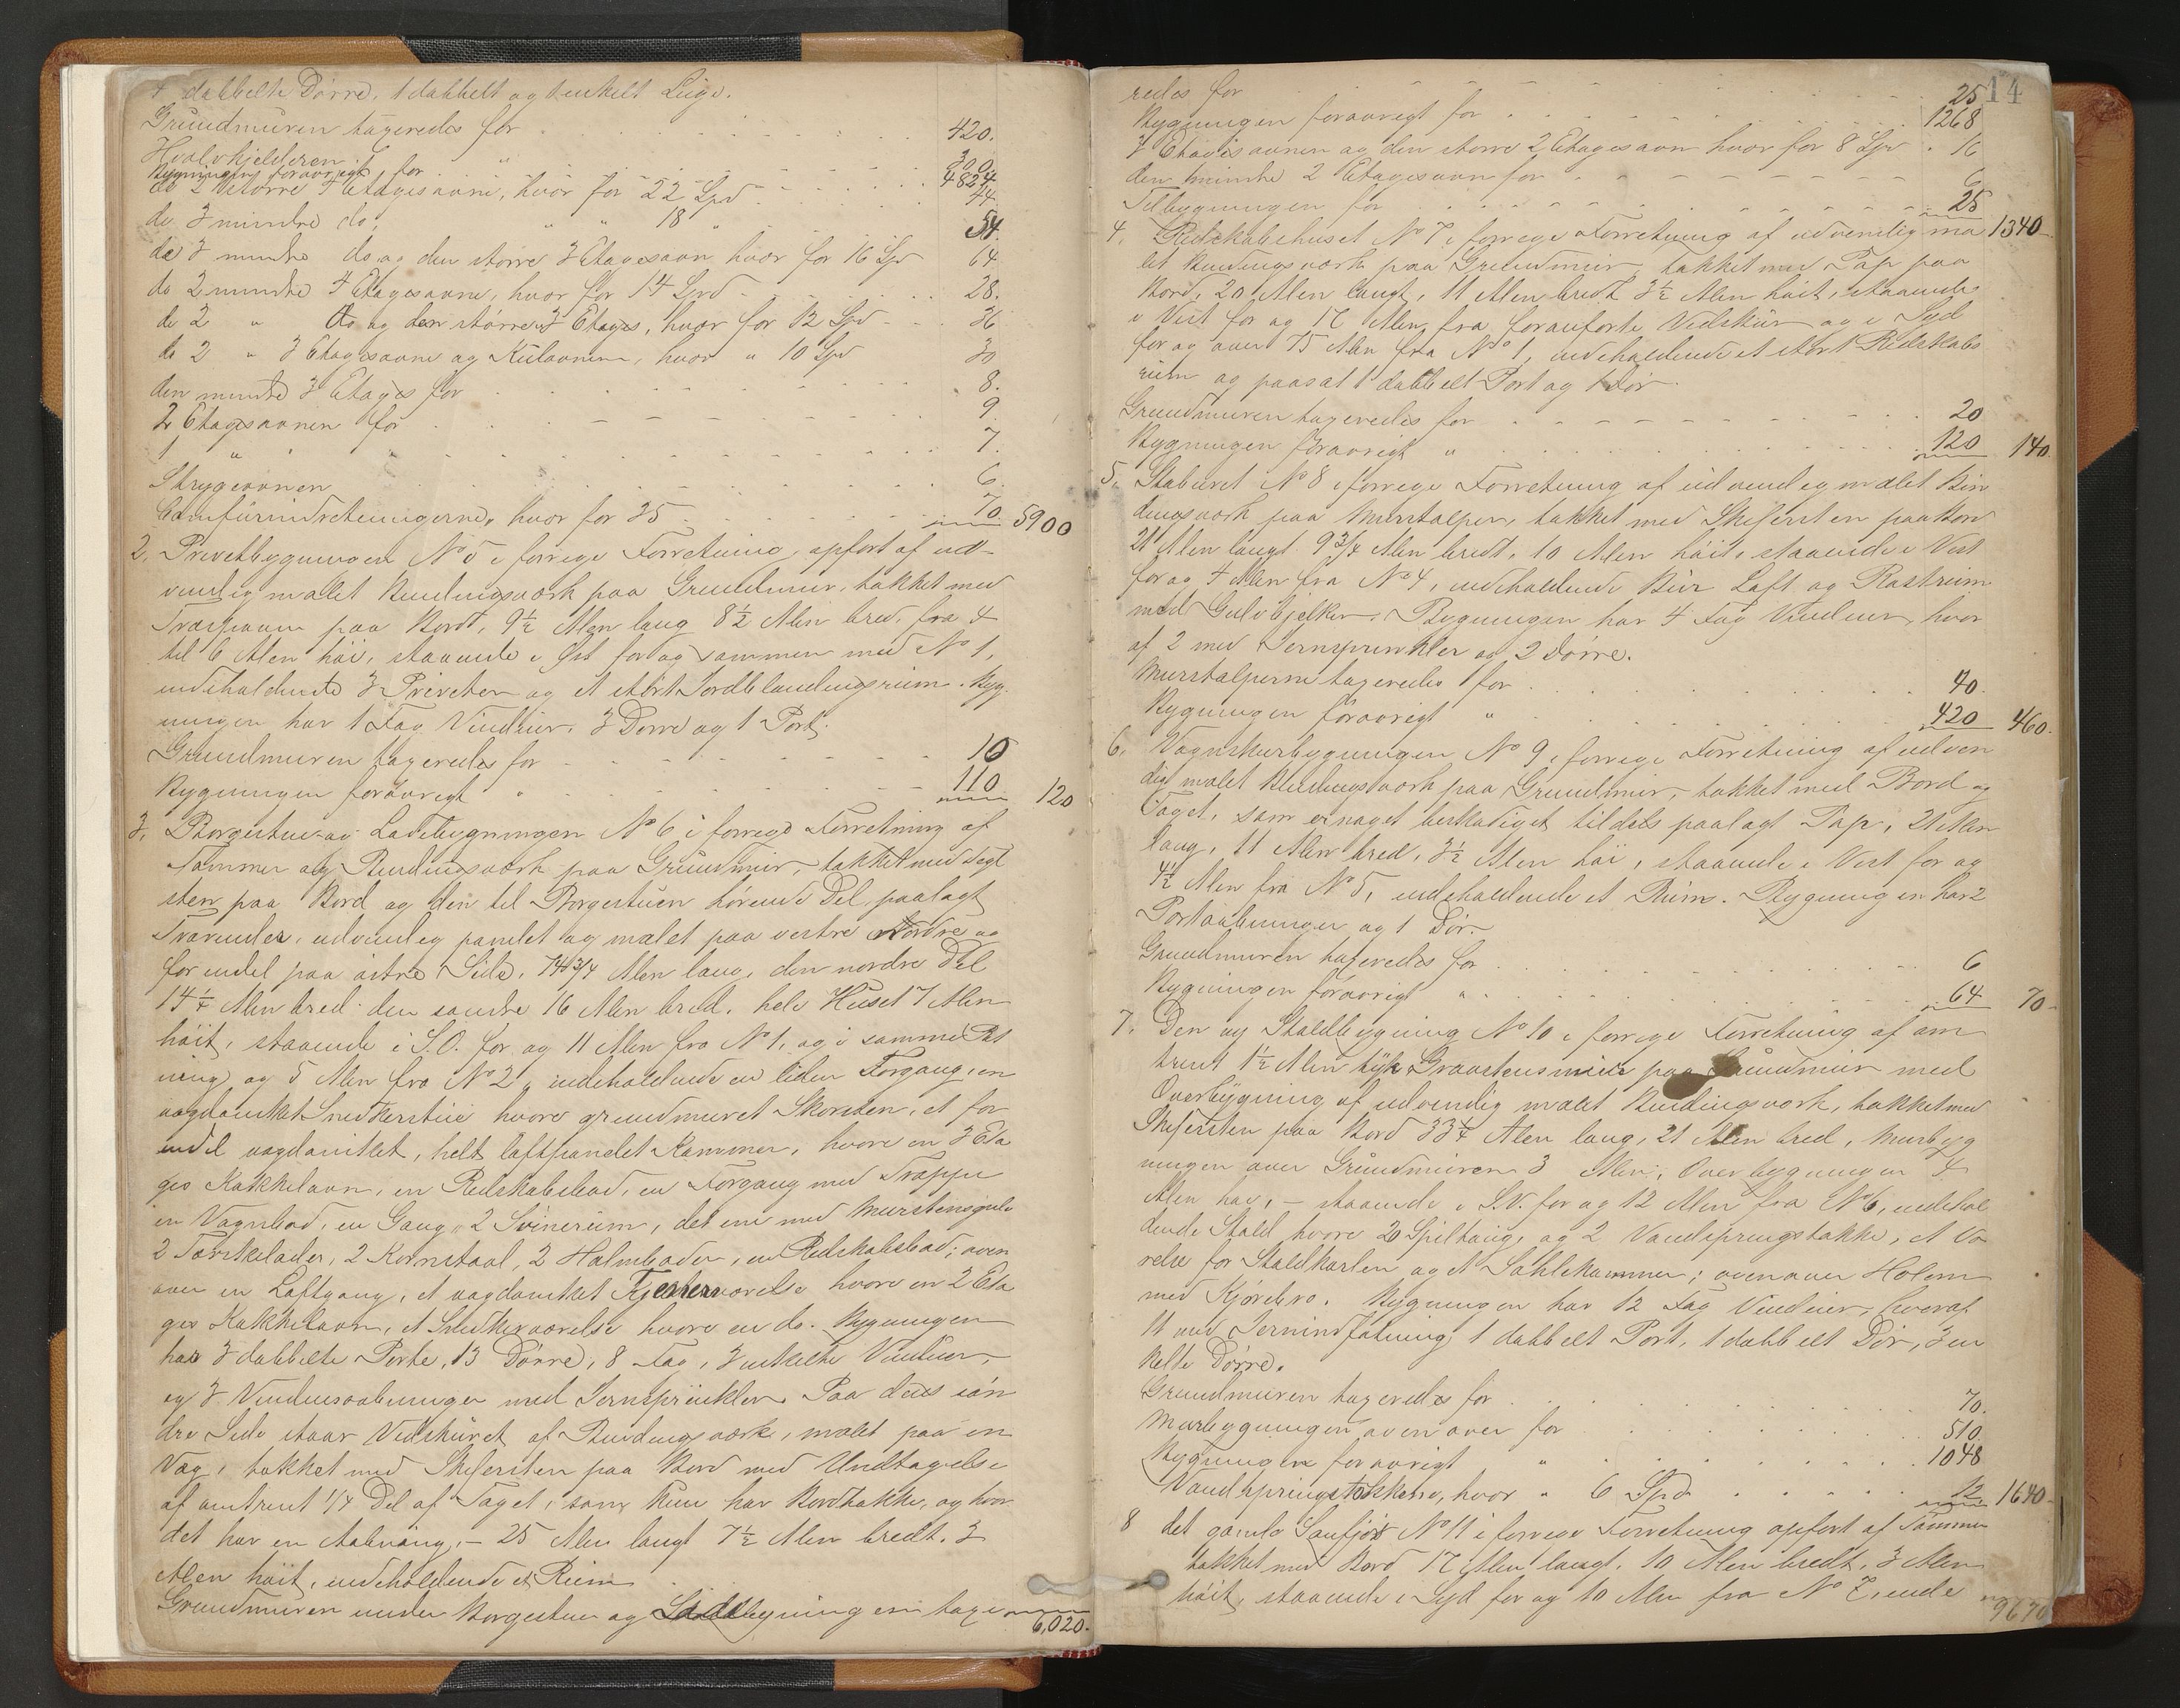 4 dobbelte Dörre, 1 dobbelt og 1 enkelt Luge.
Grundmuren taxeredes for 420.
Hvalvkjelderen " 300
Bygningen forøvrigt for 4824
de 2 större 4 Etagesovne, hvor for 22 Spd 44.
de 3 mindre do, " 18 " 54.
de 3 mindre do og den större 3 Etagesovn hvor for 16 Spd 64
de 2 mindre 4 Etagesovne, hvor for 14 Spd 28.
de 2 " do og den större 3 Etages, hvor for 12 Spd 36
de 2 " 3 Etagesovne og Kulovnen, hvor " 10 Spd 30
den mindre 3 Etages for 8.
2 Etagesovnen for 9.
1 " " 7.
Strygeovnen 6.
Comfurindretningerne, hvor for 35 70. 5900
2, Privetbygningen No 5 i forrige Forretning opfört af ud-
vendig malet Bindingsværk paa Grundmur, tækket med
Træspaan paa Bord, 9½ Alen lang 8½ Alen bred, fra 4
til 6 Alen höi, staaende i Öst for og sammen med No 1,
indeholdende 3 Priveter og et stört Jordblandingsrum. Byg-
ningen har 1 Fag Vinduer, 3 Dörre og 1 Port.
Grundmuren taxeredes for 10
Bygningen forøvrigt " 110 120
3, Borgestue- og Ladebygningen No 6 i forrige Forretning af
Tömmer og Bindingsværk paa Grundmur, tækket med Tegl
sten paa Bord og den til Borgestuen hörende Del paalagt
Trærender, udvendig panelet og malet paa vestre Nordre og
for endel paa östre Side, 74¾ Alen lang, den nordre Del
14¼ Alen bred den söndre 16 Alen bred, hele Huset 7 Alen
höit, staaende i S.O. for og 11 Alen fra No 1, og i samme Ret
ning og 5 Alen fra No 2, indeholdende en liden Forgang, en
uopdamket Snedkerstue hvore grundmuret Skorsten, et for
endel uopdamket, helt loftpanelet Kammer, hvore en 3 Eta
ges Kakkelovn, en Redskabsbod, en Forgang med Trappe
en Vognbod, en Gang, 2 Svinerum, det ene med Murstensgulv
2 Tærskelader, 2 Kornstaal, 2 Halmboder, en Redskabsbod; oven
over en Loftgang, et uopdamket Tjenerværelse hvore en 2 Eta
ges Kakkelovn, et Snedkerværelse hvore en do. Bygningen
har 3 dobbelte Porte, 13 Dörre, 8 Fag, 3 enkelte Vinduer,
og 3 Vinduesaabninger med Jernsprinkler. Paa dens sön
dre Side staar Vedskuret af Bindingsværk, malet paa en
Væg, tækket med Skifersten paa Bord med Undtagelse
af omtrent 1/4 Del af Taget, som kun har Bordtække, og hvor
det har en Aabning, - 25 Alen langt 7½ Alen bredt. 3
Alen höit, indeholdende et Rum
Grundmuren under Borgestue og Ladebygningen taxe
6,020.
14
redes for 25
Bygningen forøvrigt for 1268
3 Etagesovnen og den större 2 Etagesovn hvor for 8 Spd 16
den mindre 2 Etagesovn for 6
Tilbygningen for 25 1340
4, Redskabshuset No 7 i forrige Forretning af udvendig ma
let Bindingsværk paa Grundmur, tækket med Pap paa
Bord, 20 Alen langt, 11 Alen bredt 3½ Alen höit, staaende
i Vest for og 17 Alen fra foranförte Vedskur og i Syd
for og over 75 Alen fra No 1, indeholdende et stört Redskabs
rum og paasat 1 dobbelt Port og 1 Dör.
Grundmuren taxeredes for 20
Bygningen forøvrigt " 120 140.
5, Staburet No 8 i forrige Forretning af udvendig malet Bin
dingsværk paa Murstolper, tækket med Skifersten paa Bord
21 Alen langt 9¾ Alen bredt, 10 Alen höit, staaende i Vest
for og 4 Alen fra No 4, indeholdende Bur Loft og Rastrum
med Gulvbjelker. Bygningen har 4 Fag Vinduer, hvor
af 2 med Jernsprinkler og 2 Dörre.
Murstolperne taxeredes for 40.
Bygningen forøvrigt " 420 460.
6, Vognskurbygningen No 9 i forrige Forretning af udven
dig malet Bindingsværk paa Grundmur, tækket med Bord og
Taget, som er noget beskadiget tildels paalagt Pap, 21 Alen
lang, 11 Alen bred, 3½ Alen höi, staaende i Vest for og
4½ Alen fra No 5, indeholdende et Rum. Bygningen har 2
Portaabninger og 1 Dör.
Grundmuren taxeredes for 6
Bygningen forøvrigt " 64 70-
7, Den ny Staldbygning No 10 i forrige Forretning af om
trent 1½ Alen tyk Graastensmur paa Grundmur med
Overbygning af udvendig malet Bindingsværk, tækket med
Skifersten paa Bord 33¼ Alen lang, 21 Alen bred, Murbyg
ningen over Grundmuren 3 Alen, Overbygningen 4
Alen höi, - staaende i S.V. for og 12 Alen fra No 6, indehol
dende Stald hvore 20 Spiltaug, og 2 Vandspringstokke, et Væ
relse for Staldkarlen og et Sahlekammer; ovenover Holem
med Kjörebro. Bygningen har 12 Fag Vinduer, hvoraf
11 med Jernindfatning 1 dobbelt Port, 1 dobbelt Dör, 3 en
kelte Dörre.
Grundmuren taxeredes for 70.
Murbygningen ovenover for 510.
Bygningen forøvrigt " 1048
Vandspringstokkene, hvor " 6 Spd 12 1640-
8 det gamle Saufjös No 11 i forrige Forretning opfört af Tömmer
tækket med Bord 17 Alen langt, 10 Alen bredt, 3 Alen
höit, staaende i Syd for og 10 Alen fra No 7, inde
9670